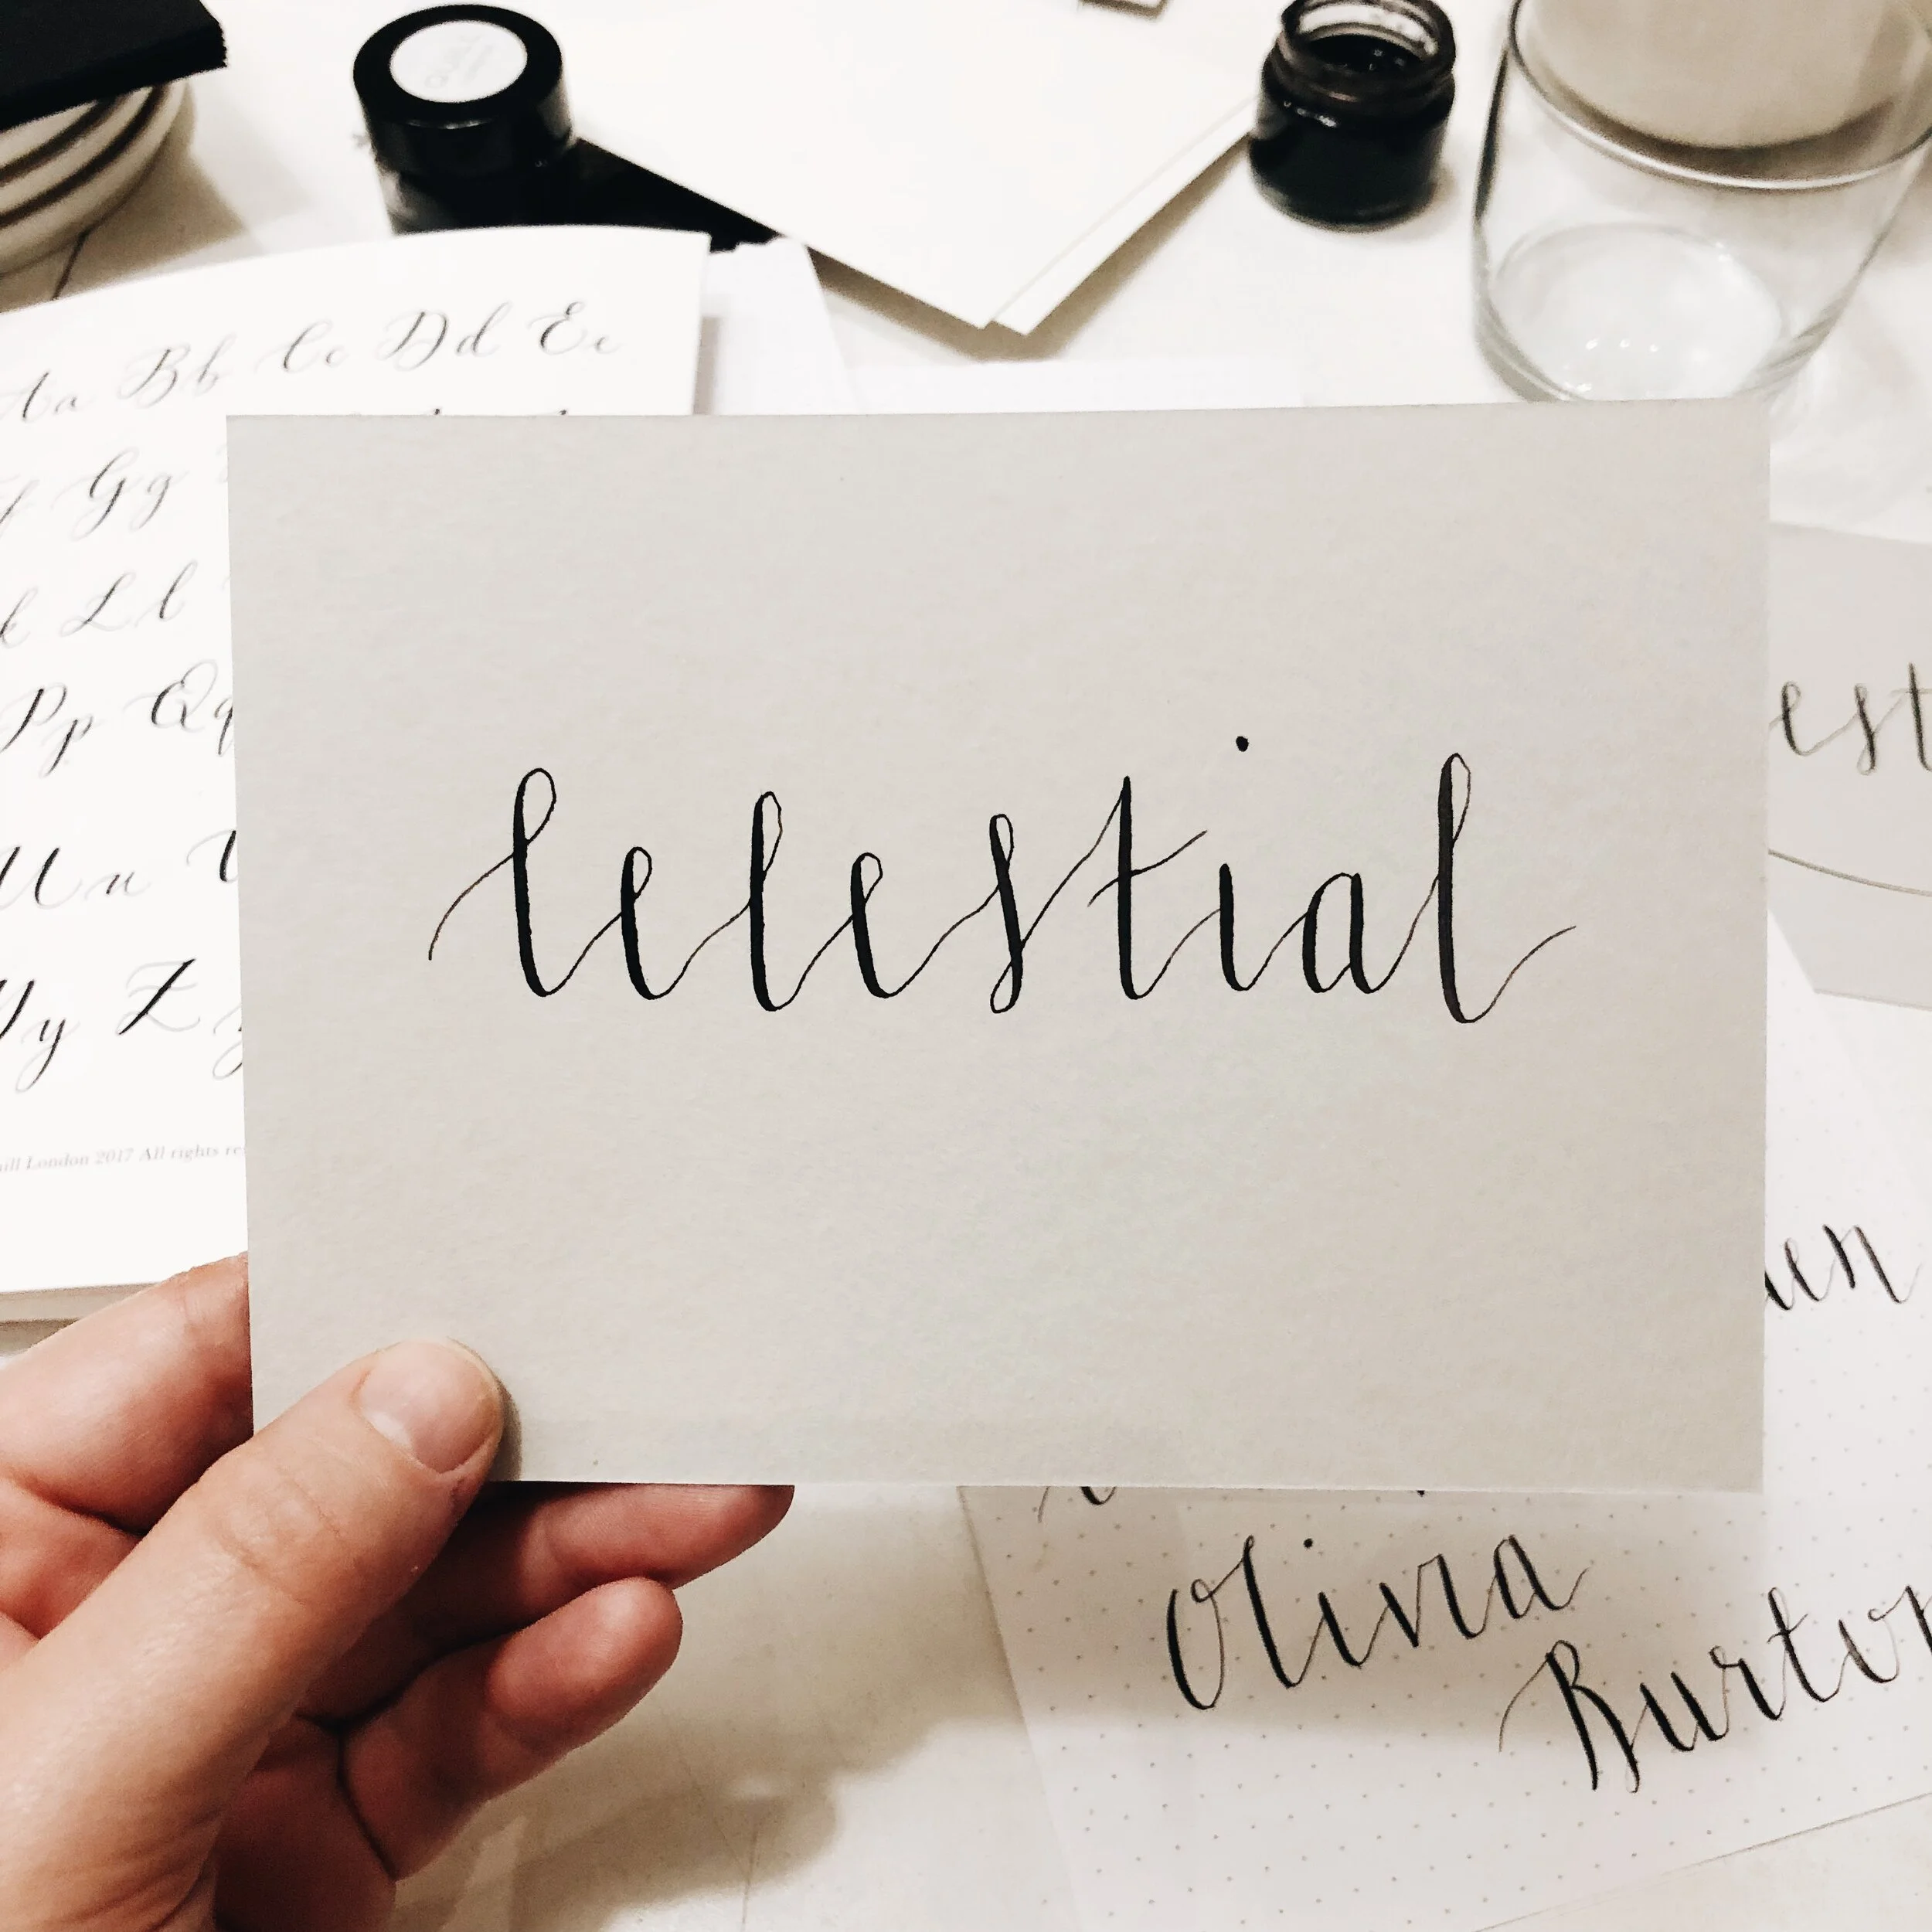 Aa Bb Cc Dd Ee
Gg
Ll
Pp Qq
Uu
Yy Z
London 2017 All rights
Celestial
est
en
Olivia
Burton